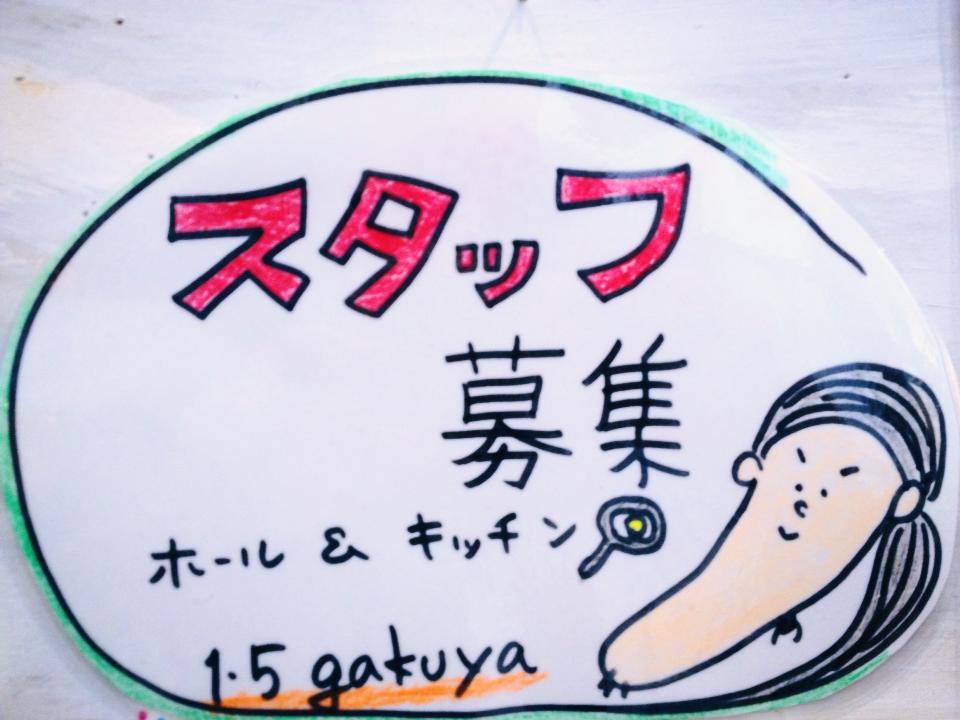 スタッフ
募集
ホール & キッチン
1.5 gakuya